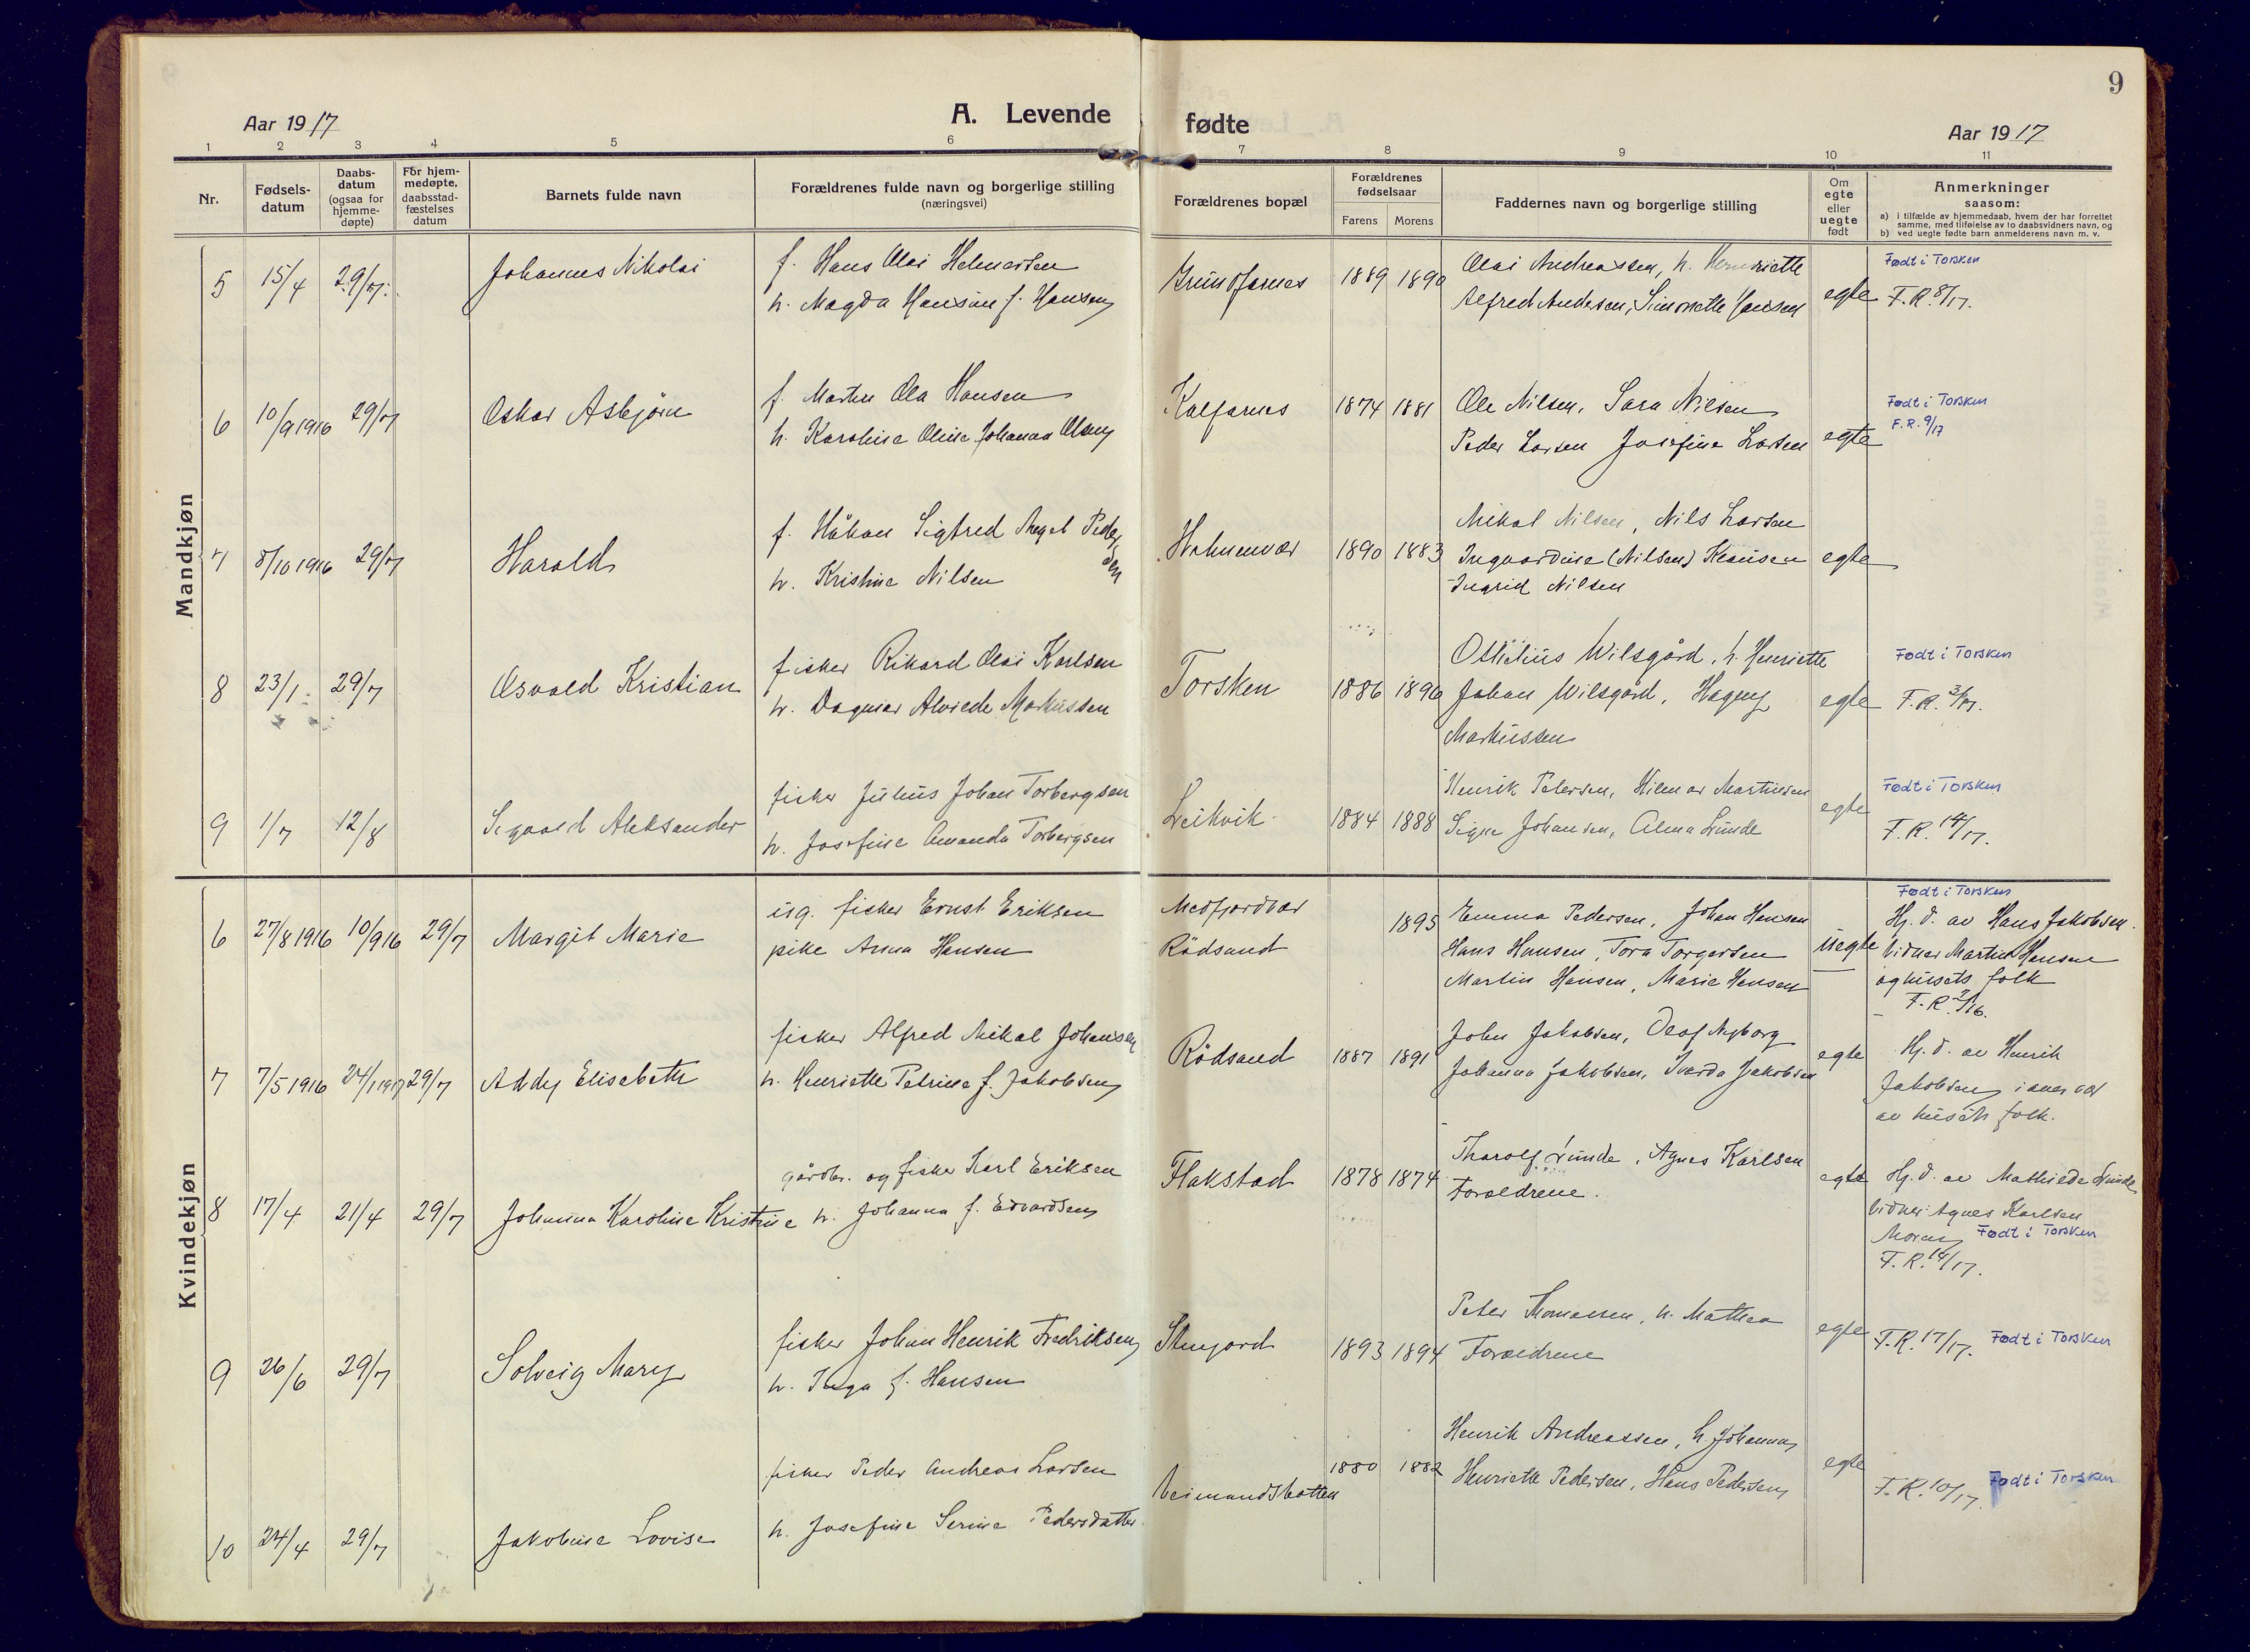 9
Aar 1917
A. Levende fødte
Aar 1917
1 2 3 4 5 6 7 8 9 10 11
Nr.
Fødsels-
datum
Daabs-
datum
(ogsaa for
hjemme-
døpte)
For hjem-
medøpte,
daabsstad-
fæstelses
datum
Barnets fulde navn
Forældrenes fulde navn og borgerlige stilling
(næringsvei)
Forældrenes bopæl
Forældrenes
fødselsaar
Farens Morens
Faddernes navn og borgerlige stilling
Om
egte
eller
uegte
født
Anmerkninger
saasom:
a) i tilfælde av hjemmedaab, hvem der har forrettet
samme, med tilføielse av to daabsvidners navn, og
b) ved uegte fødte barn anmelderens navn m. v.
Mandkjøn
5 15/4 29/7. Johannes Nikolai
f. Hans Olai Helmersen
h. Magda Hansine f. Hansen
Grundfarnes 1889 1890
Olai Andreassen, h. Henriette
Alfred Andersen, Simonette Jensen
egte
Født i Torsken
F.R. 8/17.
6 10/9 1916 29/7 Oskar Asbjørn
f. Martin Ola Hansen
h. Karoline Oline Johanna Olsen
Kalfarnes 1874 1881
Ole Nilsen, Sara Nilsen
Peder Larsen Josefine Larsen
egte
Født i Torsken
F.R. 9/17
7 8/10 1916 29/7 Harald
f. Håkon Sigfred Angel Peder
sen
h. Kristine Nilsen
Holmenvær 1890 1883
Mikal Nilsen, Nils Larsen
Ingvardine (Nilsen) Hansen
Ingrid Nilsen
egte
8 23/1 29/7 Osvald Kristian
fisker Rikard Olai Karlsen
h. Dagmar Alviede Markussen
Torsken 1886 1896
Othelius Wilsgård, h. Henriette
Johan Wilsgård, Hagny
Markussen
egte
Født i Torsken
F.R. 3/17.
9 1/7 12/8 Sigvald Aleksander
fisker Julius Johan Torbergsen
h. Josefine Amanda Torbergsen
Leikvik 1884 1888
Henrik Petersen, Hilmar Martinsen
Signe Johansen, Alma Lunde
egte
Født i Torsken
F.R. 14/17.
Kvindekjøn
6 27/8 1916 10/9 16 29/7 Margit Marie
ug. fisker Ernst Eriksen
pike Anna Hansen
Medfjordvær
Rödsand
1895
Emma Pedersen, Johan Hansen
Hans Hansen, Tora Torgersen
Martin Hansen, Marie Hansen
uegte
Født i Torsken
Hj. d. av Hans Jakobsen.
Vidner Martin Hansen
og husets folk
F.R. 7/16.
7 7/5 1916 24/1 1917 29/7 Addy Elisabeth
fisker Alfred Mikal Johansen
h. Henriette Petrine f. Jakobsen
Rödsand 1887 1891
John Jakobsen, Olaf Nyborg
Johanna Jakobsen, Ivarda Jakobsen
egte
Hj. d. av Henrik
Jakobsen i nærvær
av husets folk.
8 17/4 21/4 29/7 Johanna Karoline Kristine
gårdbr. og fisker Karl Eriksen
h. Johanna f. Edvardsen
Flakstad 1878 1874
Tharolf Lunde, Agnes Karlsen
Forældrene.
egte
Hj. d. av Mathilde Lunde
Vidner Agnes Karlsen
Moren Født i Torsken
F.R. 14/17.
9 26/6 29/7 Solveig Mary
fisker Johan Henrik Fredriksen
h. Inga f. Hansen
Stenjord 1893 1894
Peter Thomassen, h. Mathea
Forældrene
egte
F.R. 17/17. Født i Torsken
10 24/4 29/7 Jakobine Lovise
fisker Peder Andreas Larsen
h. Josefine Serine Pedersdatter
Veimandsbotten 1880 1882
Henrik Andreassen, h. Johanna
Henriette Pedersen, Hans Pedersen
egte
F.R. 10/17. Født i Torsken